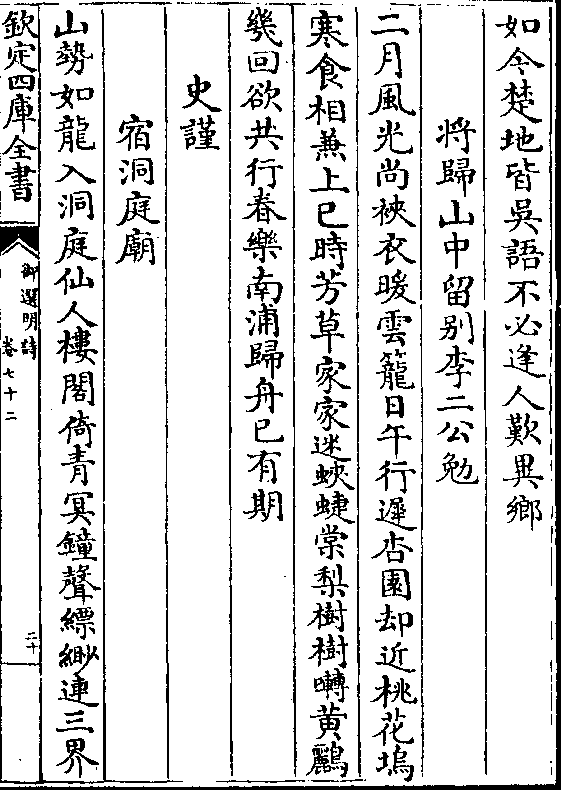 如今楚地皆吳語不必逢人歎異鄉
將歸山中留别李二公勉
二月風光尚裌衣暖雲籠日午行遲杏園却近桃花塢
寒食相兼上巳時芳草家家迷蛺蝶棠梨樹樹囀黄鸝
幾回欲共行春樂南浦歸舟已有期
史謹
宿洞庭廟
山勢如龍入洞庭仙人樓閣倚青冥鐘聲縹緲連三界
欽定四庫全書
御選明詩
卷七十二
二十